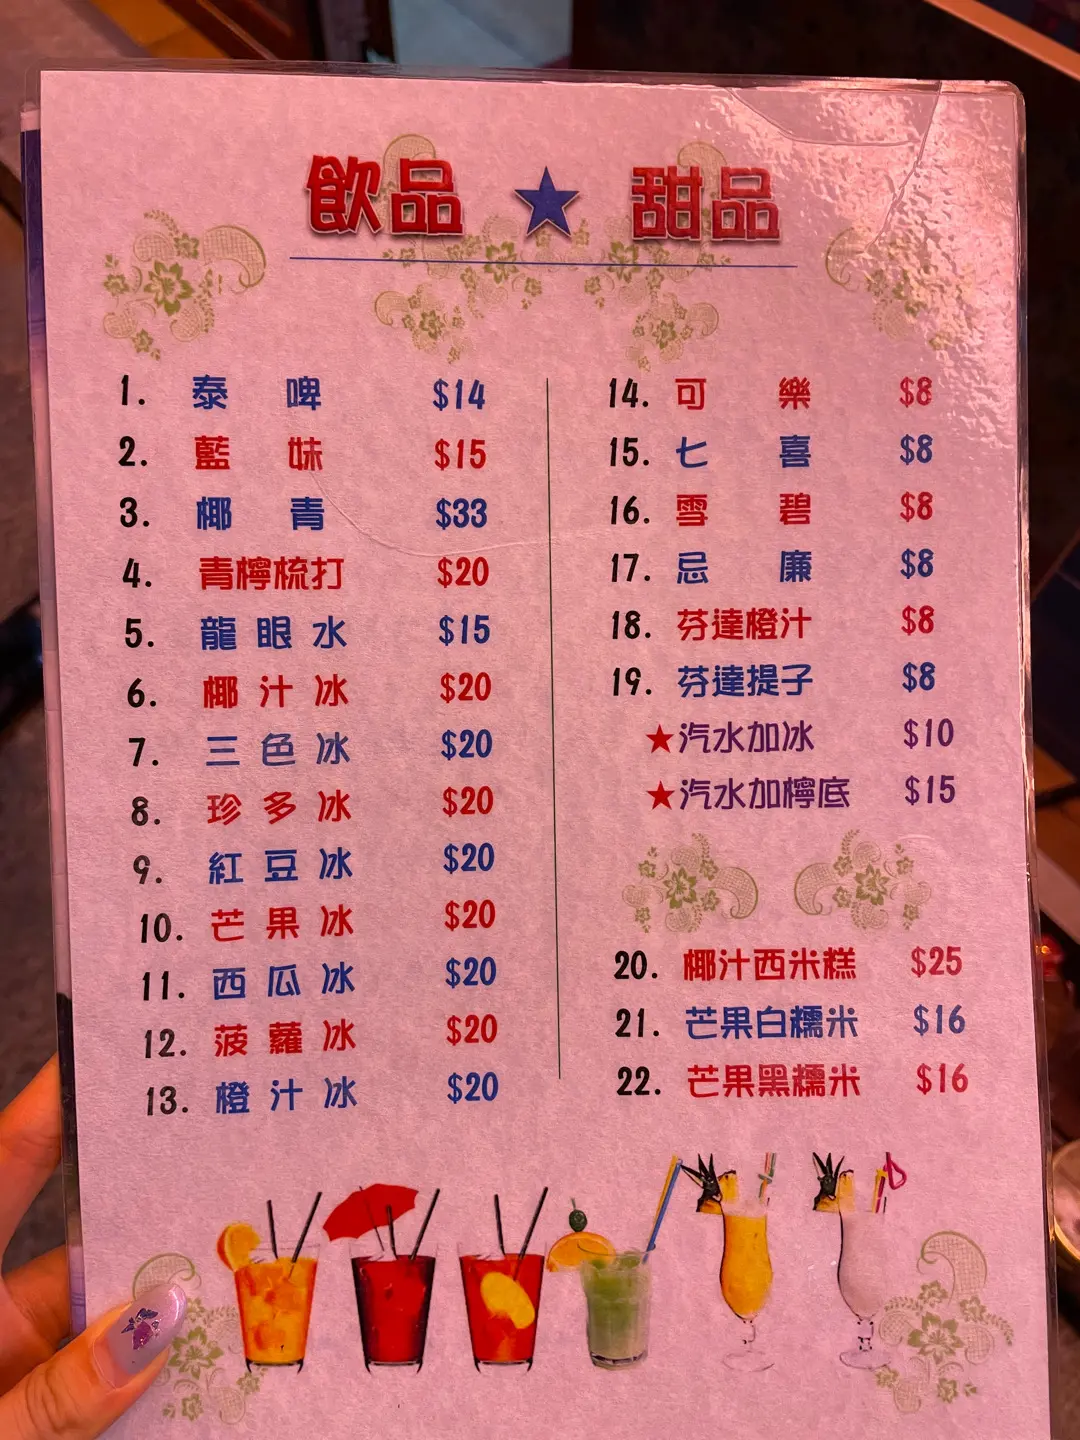 飲品 ★ 甜品
1. 泰啤 $14
2. 藍妹 $15
3. 椰青 $33
4. 青檸梳打 $20
5. 龍眼水 $15
6. 椰汁冰 $20
7. 三色冰 $20
8. 珍多冰 $20
9. 紅豆冰 $20
10. 芒果冰 $20
11. 西瓜冰 $20
12. 菠蘿冰 $20
13. 橙汁冰 $20
14. 可樂 $8
15. 七喜 $8
16. 雪碧 $8
17. 忌廉 $8
18. 芬達橙汁 $8
19. 芬達提子 $8
★汽水加冰 $10
★汽水加檸底 $15
20. 椰汁西米糕 $25
21. 芒果白糯米 $16
22. 芒果黑糯米 $16